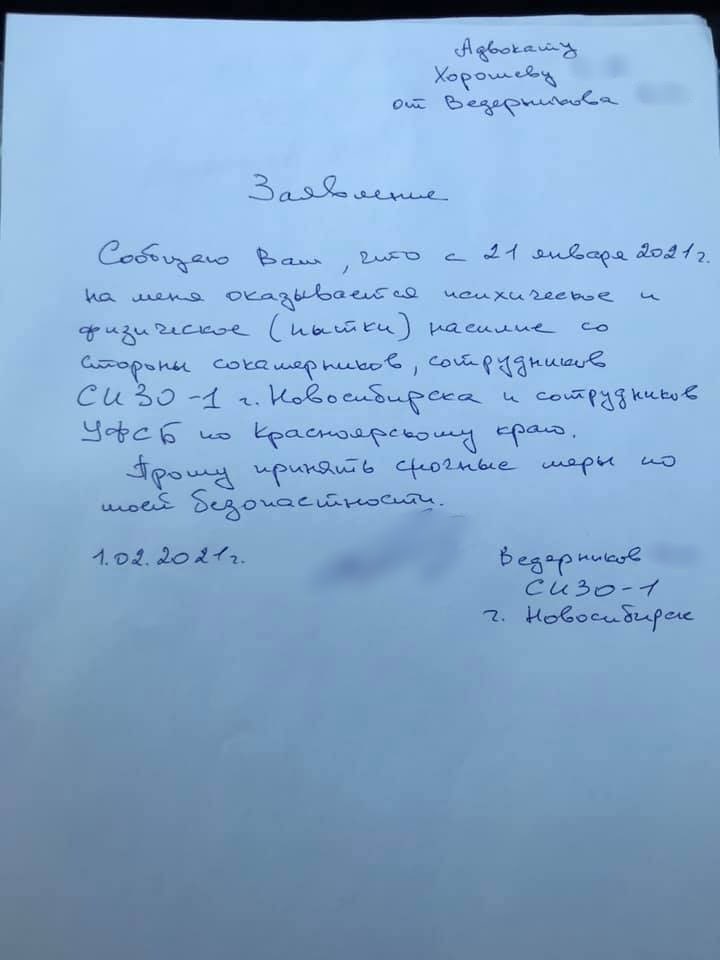 Адвокату
Хорошеву
от Ведерникова
Заявление
Сообщаю Вам, что с 21 января 2021г.
на меня оказывается психическое и
физическое (пытки) насилие со
стороны сокамерников, сотрудников
СИЗО-1 г. Новосибирска и сотрудников
УФСБ по Красноярскому краю.
Прошу принять срочные меры по
моей безопастности.
1.02.2021г.
Ведерников
СИЗО-1
г. Новосибирск